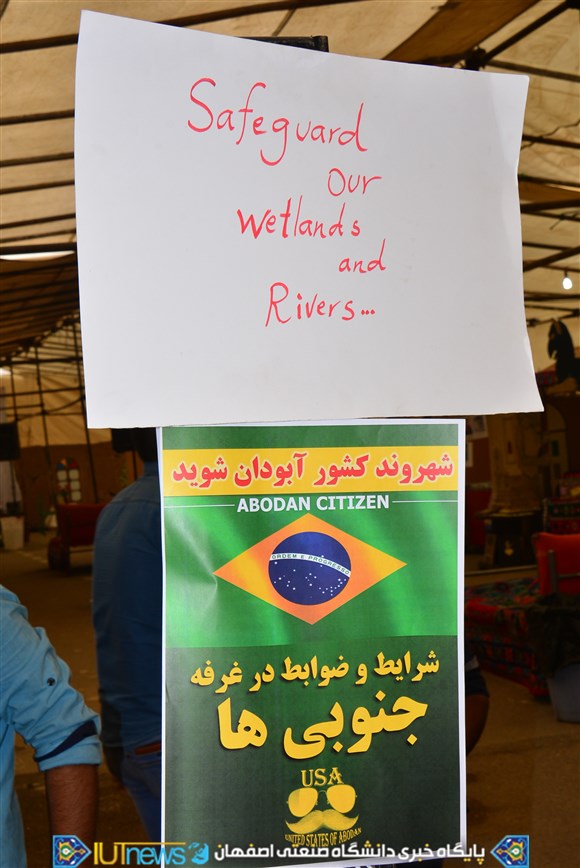 Safeguard
our
Wetlands
and
Rivers...
شهروند کشور آبودان شوید
ABODAN CITIZEN
ORDEM E PROGRESSO
شرایط و ضوابط در غرفه
جنوبی ها
USA
UNITED STATES OF ABODAN
IUTnews پایگاه خبری دانشگاه صنعتی اصفهان